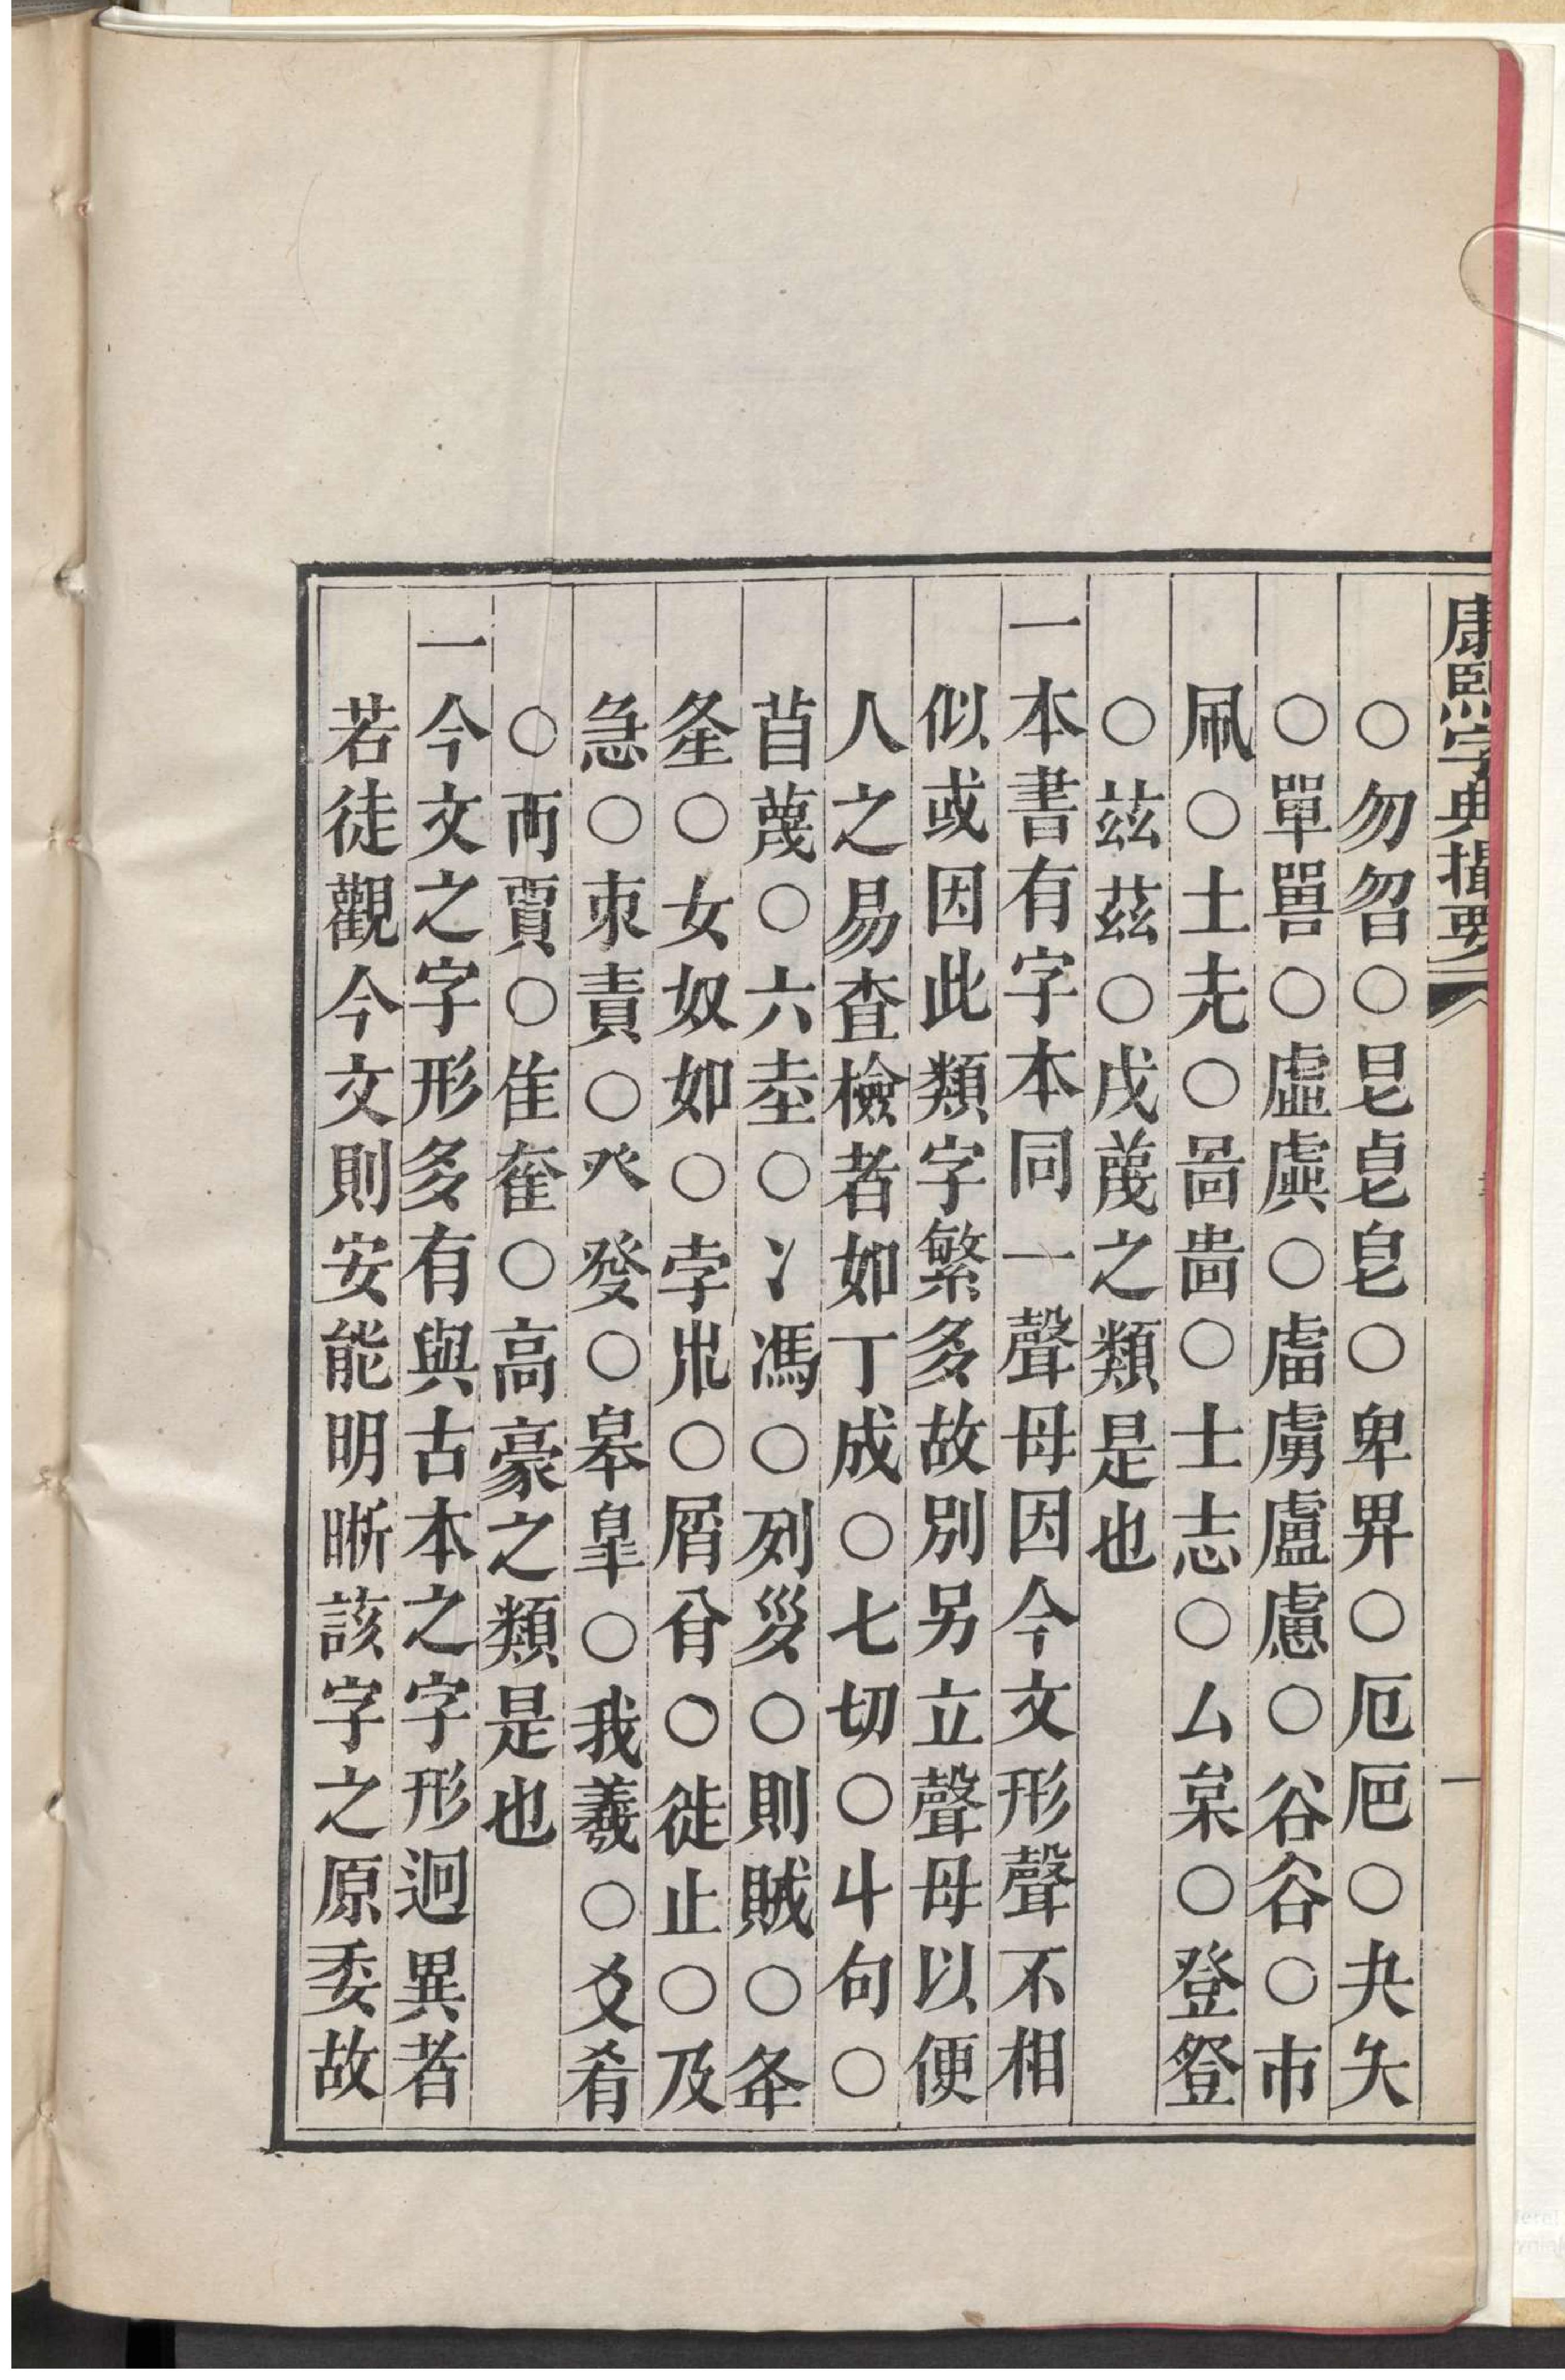 康熙字典撮要
一
○勿曶○皀皃皂○卑畀○厄巵○夬矢
○單嘼○虛虡○虘虜盧慮○谷谷○市
凧○土圥○啚嗇○士志○厶枲○登豋
○茲茲○戌蔑之類是也
一本書有字本同一聲母因今文形聲不相
似或因此類字繁多故別另立聲母以便
人之易查檢者如丁成○七切○斗句○
苜蔑○六坴○冫馮○列災○則賊○夅
夆○女奴如○孛𣎵○屑㕣○徙止○及
急○朿責○癶發○皋睪○我羲○爻肴
○襾賈○隹奞○高豪之類是也
一今文之字形多有與古本之字形迥異者
若徒觀今文則安能明晰該字之原委故